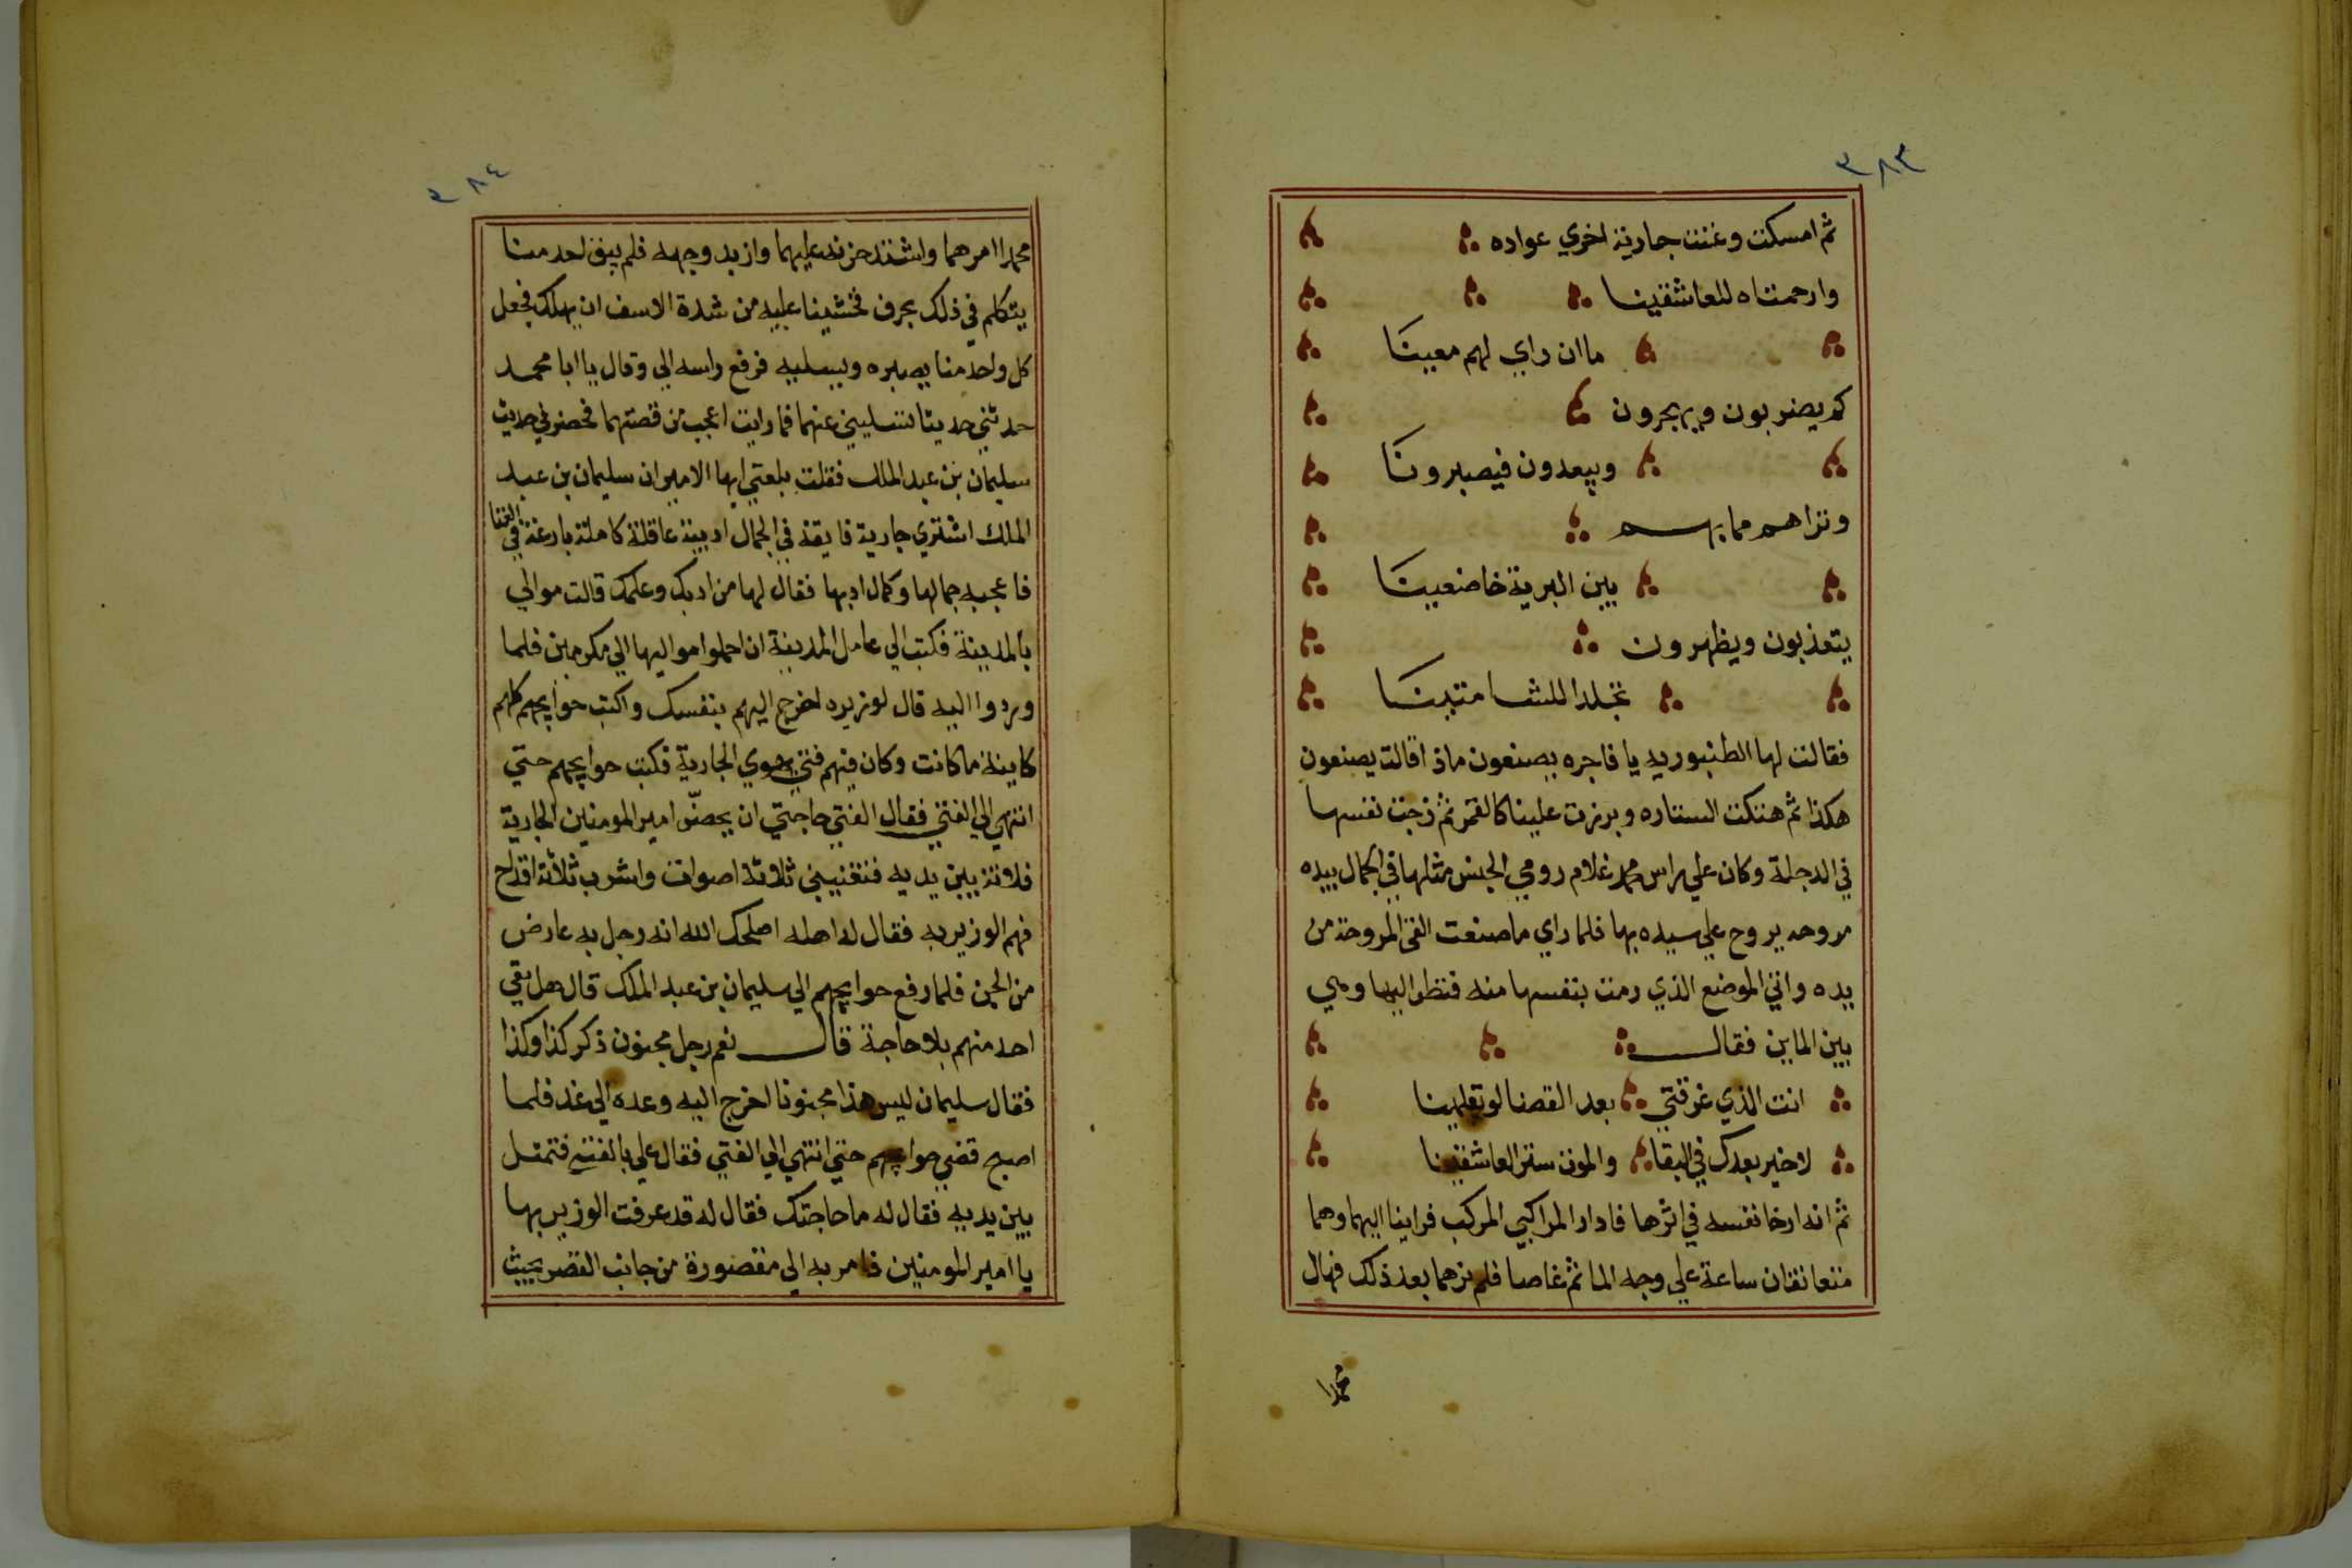 ٣٨٣
ثم امسكت وغنت جارية اخري عواده
وارحمتاه للعاشقينا
ماان راي لهم معينا
كم يضربون ويهجرون
ويبعدون فيصبرونا
وتراهم مما بهم
بين البرية خاضعينا
يتعذبون ويظهرون
تجلدا للشامتينا
فقالت لها الطنبوريه يا فاجره يصنعون ماذا قالت يصنعون
هكذا ثم هتكت الستاره وبرزت علينا كالقمر ثم زجت نفسها
في الدجلة وكان علي راس محمد غلام رومي الجنس مثلها في الجمال بيده
مروحه يروح علي سيده بها فلما راي ما صنعت القي المروحة من
يده واتي الموضع الذي رمت بنفسها منه فنظر اليها وهي
بين الماين فقال
انت الذي غرقتي بعد القضا لو تعلمينا
لا خير بعدك في البقا والموت ستر العاشقينا
ثم انه ارخا نفسه في اثرها فادار المراكبي المركب فراينا اليهما وهما
متعانقان ساعة علي وجه الما ثم غاصا فلم نرهما بعد ذلك فهال
محمدا
٣٨٤
محمدا امرهما واشتد حزنه عليهما وازبد وجهه فلم يبق احد منا
يتكلم في ذلك بحرف فخشينا عليه من شدة الاسف ان يهلك فجعل
كل واحد منا يصبره ويسليه فرفع راسه الي وقال يا ابا محمد
حدثني حديثا تسليني عنهما فما رايت اعجب من قصتهما فحضرني حديث
سليمان بن عبد الملك فقلت بلغني ايها الامير ان سليمان بن عبد
الملك اشتري جارية فايقة في الجمال اديبة عاقلة كاملة بارعة في الغنا
فاعجبه جمالها وكمال ادبها فقال لها من ادبك وعلمك قالت موالي
بالمدينة فكتب الي عامل المدينة ان احملوا مواليها الي مكرمين فلما
وردوا اليه قال لوزيره اخرج اليهم بنفسك واكتب حوايجهم كلهم
كاينة ما كانت وكان فيهم فتي يهوي الجارية فكتب حوايجهم حتي
انتهي الي الفتي فقال الفتي حاجتي ان يحضر امير المومنين الجارية
فلانة بين يديه فتغنيني ثلاثة اصوات واشرب ثلاثة اقداح
فهم الوزير به فقال له اهله اصلحك الله انه رجل به عارض
من الجن فلما رفع حوايجهم الي سليمان بن عبد الملك قال هل بقي
احد منهم بلا حاجة قال نعم رجل مجنون ذكر كذا وكذا
فقال سليمان ليس هذا مجنونا اخرج اليه وعده الي غد فلما
اصبح قضي حوايجهم حتي انتهي الي الفتي فقال علي بالفتي فتمثل
بين يديه فقال له ما حاجتك فقال له قد عرفت الوزير بها
يا امير المومنين فامر به الي مقصورة من جانب القصر بحيث